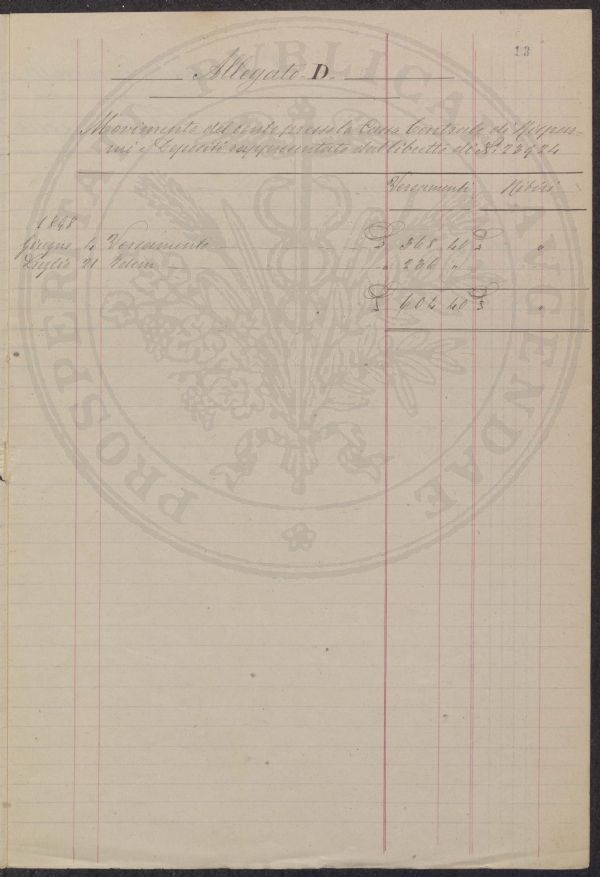 13
Allegato D.
Movimento del conto presso la Cassa Centrale di Rispar-
mi e Depositi rappresentato dal libretto di N.°
Versamenti Ritiri
Giugno 4 Versamento £ 368 40 £ "
Luglio 21 Idem " 236 "
£ 604 40 £ "
PROSPERITATI PUBLICAE AUGENDAE